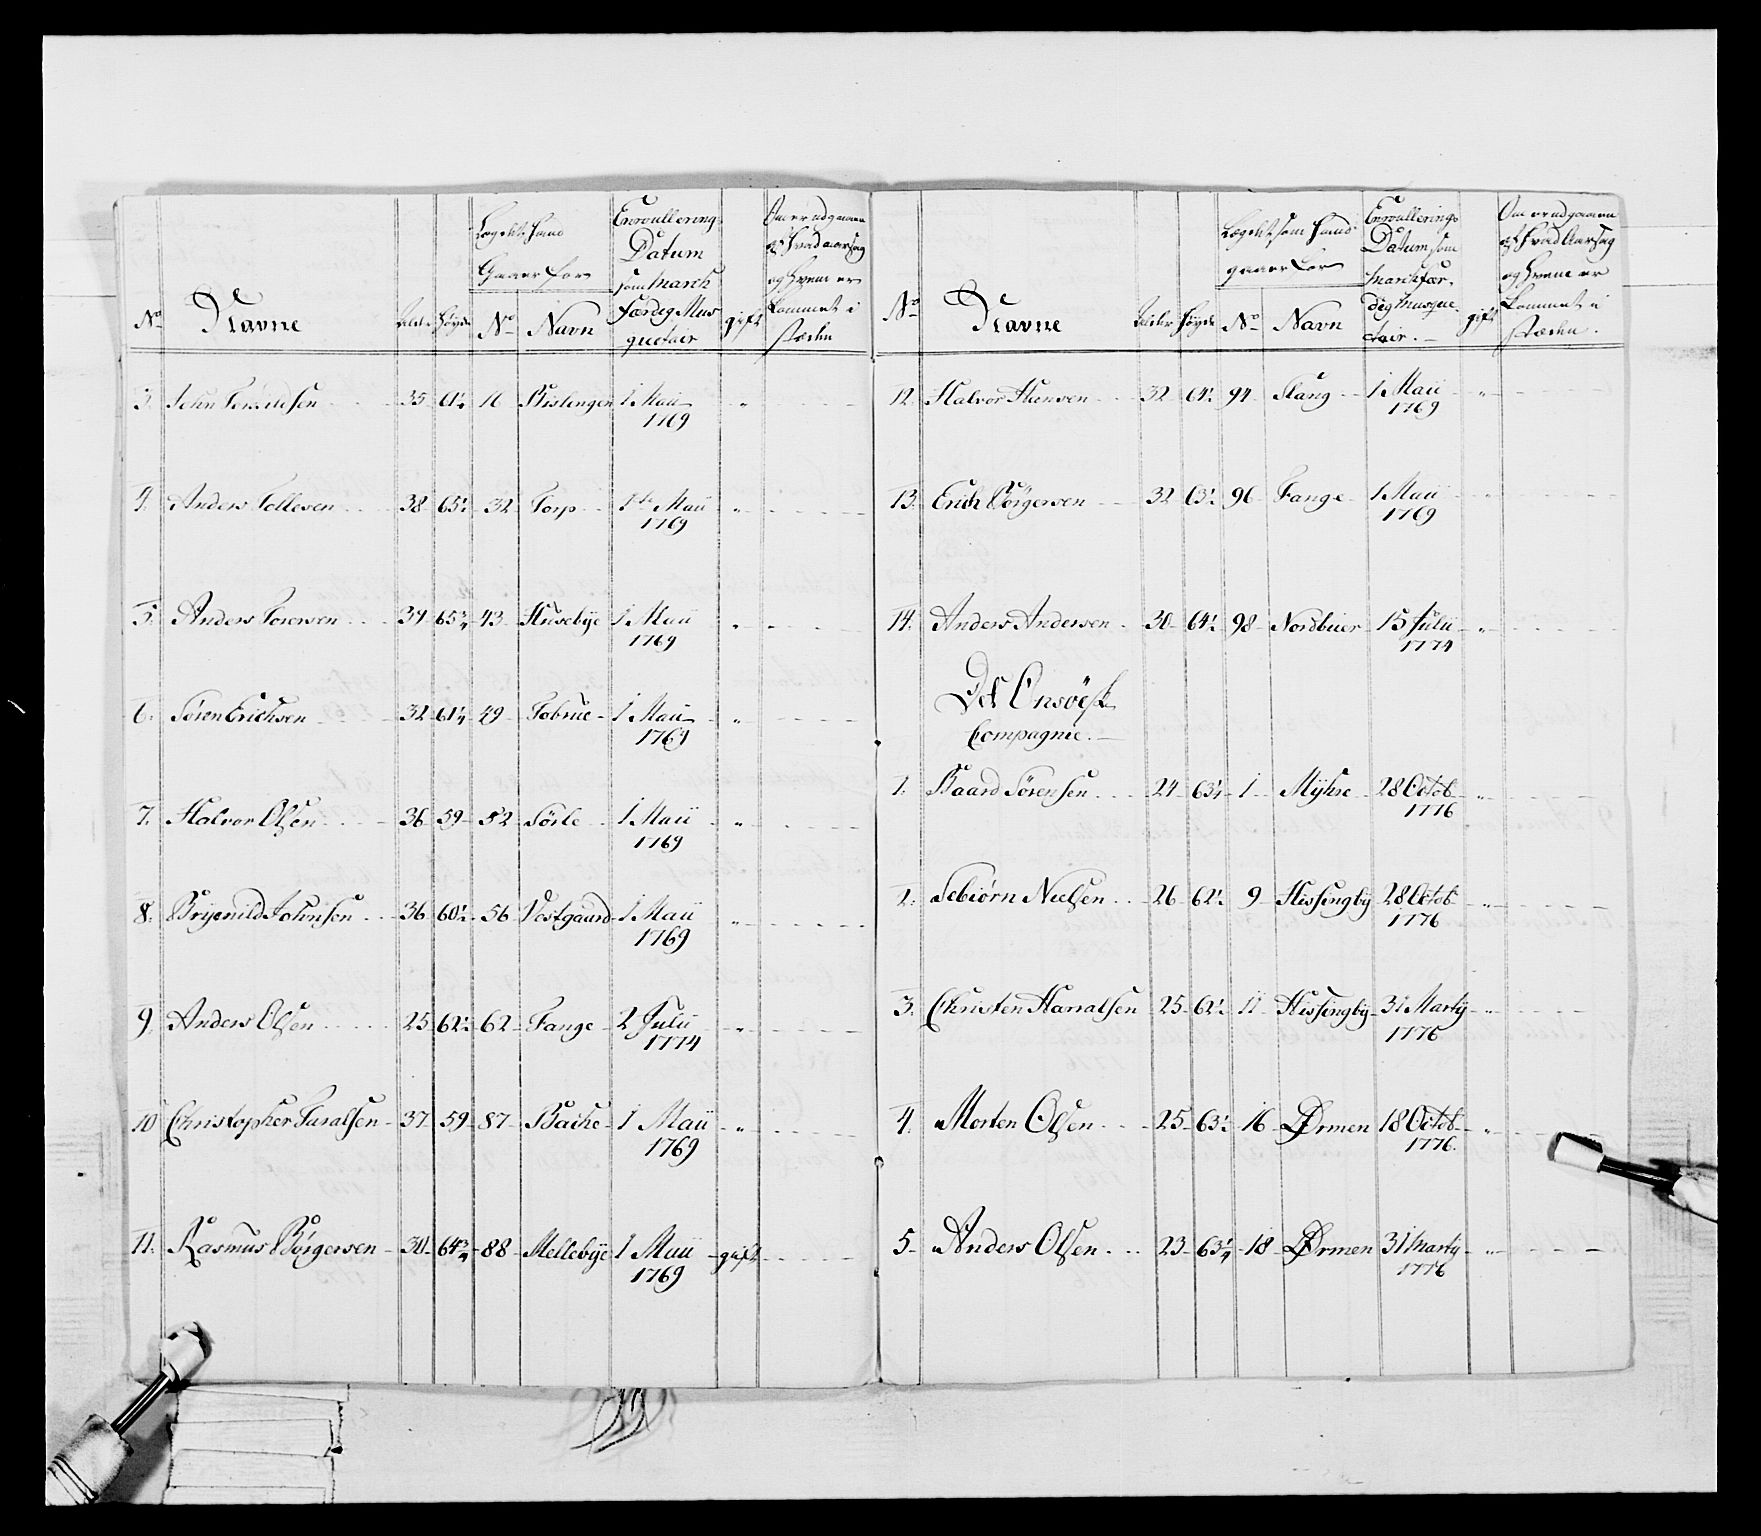 No Navne Alder Høyde Lægdet hand Gaaer for No Navn Enroullerings Datum som March færdig Mus quetair gift Om er udgaaen af hvad aarsag og hvem er kommet i stæden
3. John 35 61¼ 16 Bislingen 1 Maii 1769 "
4. Anders Tollesen 38 65½ 32 Torp 1te Maii 1769 "
5. Anders Toresen 34 65¾ 43 Husebÿe 1 Maii 1769 "
6. Søren Erichsen 32 61¼ 49 Tobrue 1 Maii 1769 "
7. Halvor Olsen 36 59 52 Sörle 1 Maii 1769 "
8. Brÿenild Johnsen 36 60½ 56 Vestgaard 1 Maii 1769 "
9. Anders Olsen 25 62½ 62 Fange 2 Julii 1774 "
10 Christopher Taralsen 37 59 87 Bache 1 Maii 1769 "
11. Rasmus Börgersen 30 64¾ 88 Mellebÿe 1 Maii 1769 gift
No Navne Alder Høyde Lægdet som hand gaaer for No Navn Enroullerings Datum som Marchfær dig Musque tair. gift Om er udgaaen af hvad Aarsag og hvem er kommet i stæden.
12. Halvor Hansen 32 64½ 94 Stang 1 Maii 1769 "
13. Erich Börgersen 32 63½ 96 Fange 1 Maii 1769 "
14. Anders Andersen 30 64½ 98 Nordbuer 15 Julii 1774 "
Det Onsöeske
Compagnie.
1. Baard Sörensen 24 63¼ 1 Mÿhre 28 Octob 1776 "
2. Sebiörn Nielsen 26 62½ 9 Hissingbÿ 28 Octob 1776 "
3. Christen Harralsen 25 62½ 11 Hissingbÿ 31 Martÿ 1776 "
4. Morten Olsen 25 63½ 16 Ørmen 18 Octob 1776. "
5. Anders Olsen 23 63¼ 18 Ørmen 31 Martÿ 1776 "